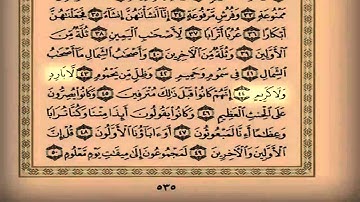 مَّمْنُوعَةٍ ٣٣ وَفُرُشٍ مَّرْفُوعَةٍ ٣٤ إِنَّا أَنشَأْنَٰهُنَّ إِنشَآءً ٣٥ فَجَعَلْنَٰهُنَّ
أَبْكَارًا ٣٦ عُرُبًا أَتْرَابًا ٣٧ لِّأَصْحَٰبِ ٱلْيَمِينِ ٣٨ ثُلَّةٌ مِّنَ
ٱلْأَوَّلِينَ ٣٩ وَثُلَّةٌ مِّنَ ٱلْءَاخِرِينَ ٤٠ وَأَصْحَٰبُ ٱلشِّمَالِ مَآ أَصْحَٰبُ
ٱلشِّمَالِ ٤١ فِى سَمُومٍ وَحَمِيمٍ ٤٢ وَظِلٍّ مِّن يَحْمُومٍ ٤٣ لَّا بَارِدٍ
وَلَا كَرِيمٍ ٤٤ إِنَّهُمْ كَانُوا۟ قَبْلَ ذَٰلِكَ مُتْرَفِينَ ٤٥ وَكَانُوا۟ يُصِرُّونَ
عَلَى ٱلْحِنثِ ٱلْعَظِيمِ ٤٦ وَكَانُوا۟ يَقُولُونَ أَئِذَا مِتْنَا وَكُنَّا تُرَابًا
وَعِظَٰمًا أَءِنَّا لَمَبْعُوثُونَ ٤٧ أَوَءَابَآؤُنَا ٱلْأَوَّلُونَ ٤٨ قُلْ إِنَّ
ٱلْأَوَّلِينَ وَٱلْءَاخِرِينَ ٤٩ لَمَجْمُوعُونَ إِلَىٰ مِيقَٰتِ يَوْمٍ مَّعْلُومٍ ٥٠
٥٣٥